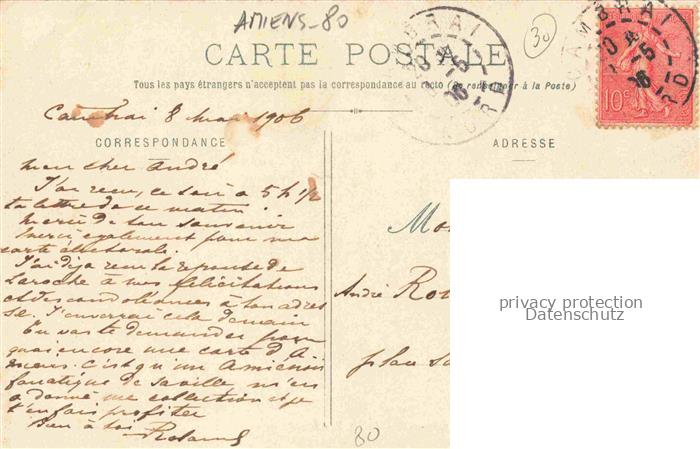 AMIENS-80
30
CARTE POSTALE
Tous les pays étrangers n'acceptent pas la correspondance au recto (se renseigner à la Poste)
CAMBRAI
NORD
10c
Cambrai 8 Mai 1906
CORRESPONDANCE
ADRESSE
mon cher André
J'ai reçu, ce soir à 5 h 1/2
ta lettre de ce matin
Merci de ton souvenir
Merci également pour ma
carte électorale.
J'ai déjà reçu la réponse de
Laroche à mes félicitations
et des condoléances à ton adres
se. J'enverrai cela demain
Tu vas te demander pour
quoi encore une carte d'A
miens. C'est qu'un Amiénois
fanatique de sa ville m'en
a donné une collection et je
t'en fais profiter
Bien à toi
Roland
Mo
André Ro
place
80
privacy protection
Datenschutz